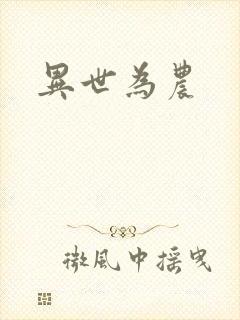 異世為農
微風中摇曳